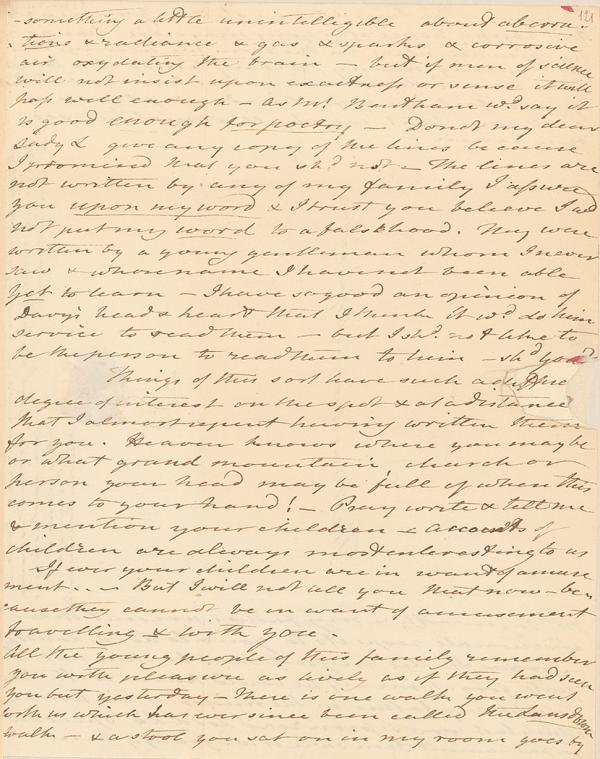 121
- something a little unintelligible about abcora-
tions & radiance & gas & sparks & corrosive
air oxydating the brain - but if men of science
will not insist upon exactness or sense it will
pass well enough - as Mr. Bentham wd. say it
is good enough for poetry - Do not my dear
Lady L give any copy of the lines because
I promised that you shd. not - The lines are
not written by any of my family I assure
you upon my word & I trust you believe I wd
not put my word to a falsehood. They were
written by a young gentleman whom I never
saw & whose name I have not been able
yet to learn - I have so good an opinion of
Davys head & heart that I think it wd. do him
service to read them - but I shd. not like to
be the person to read them to him - shd. you?
Things of this sort have such a
degree of interest on the spot & at a distance
that I almost repent having written them
for you. Heaven knows where you may be
or what grand mountain church or
person your head may be full of when this
comes to your hand! - Pray write & tell me
& mention your children - accounts of
children are always most interesting to us
If ever your children are in want of amuse
ment... - But I will not tell you that now - be-
cause they cannot be in want of amusement
travelling & with you.
All the young people of this family remember
you with pleasure as lively as if they had seen
you but yesterday - There is one walk you went
with us which has ever since been called the Lansdowne
walk - & a stool you sat on in my room goes by